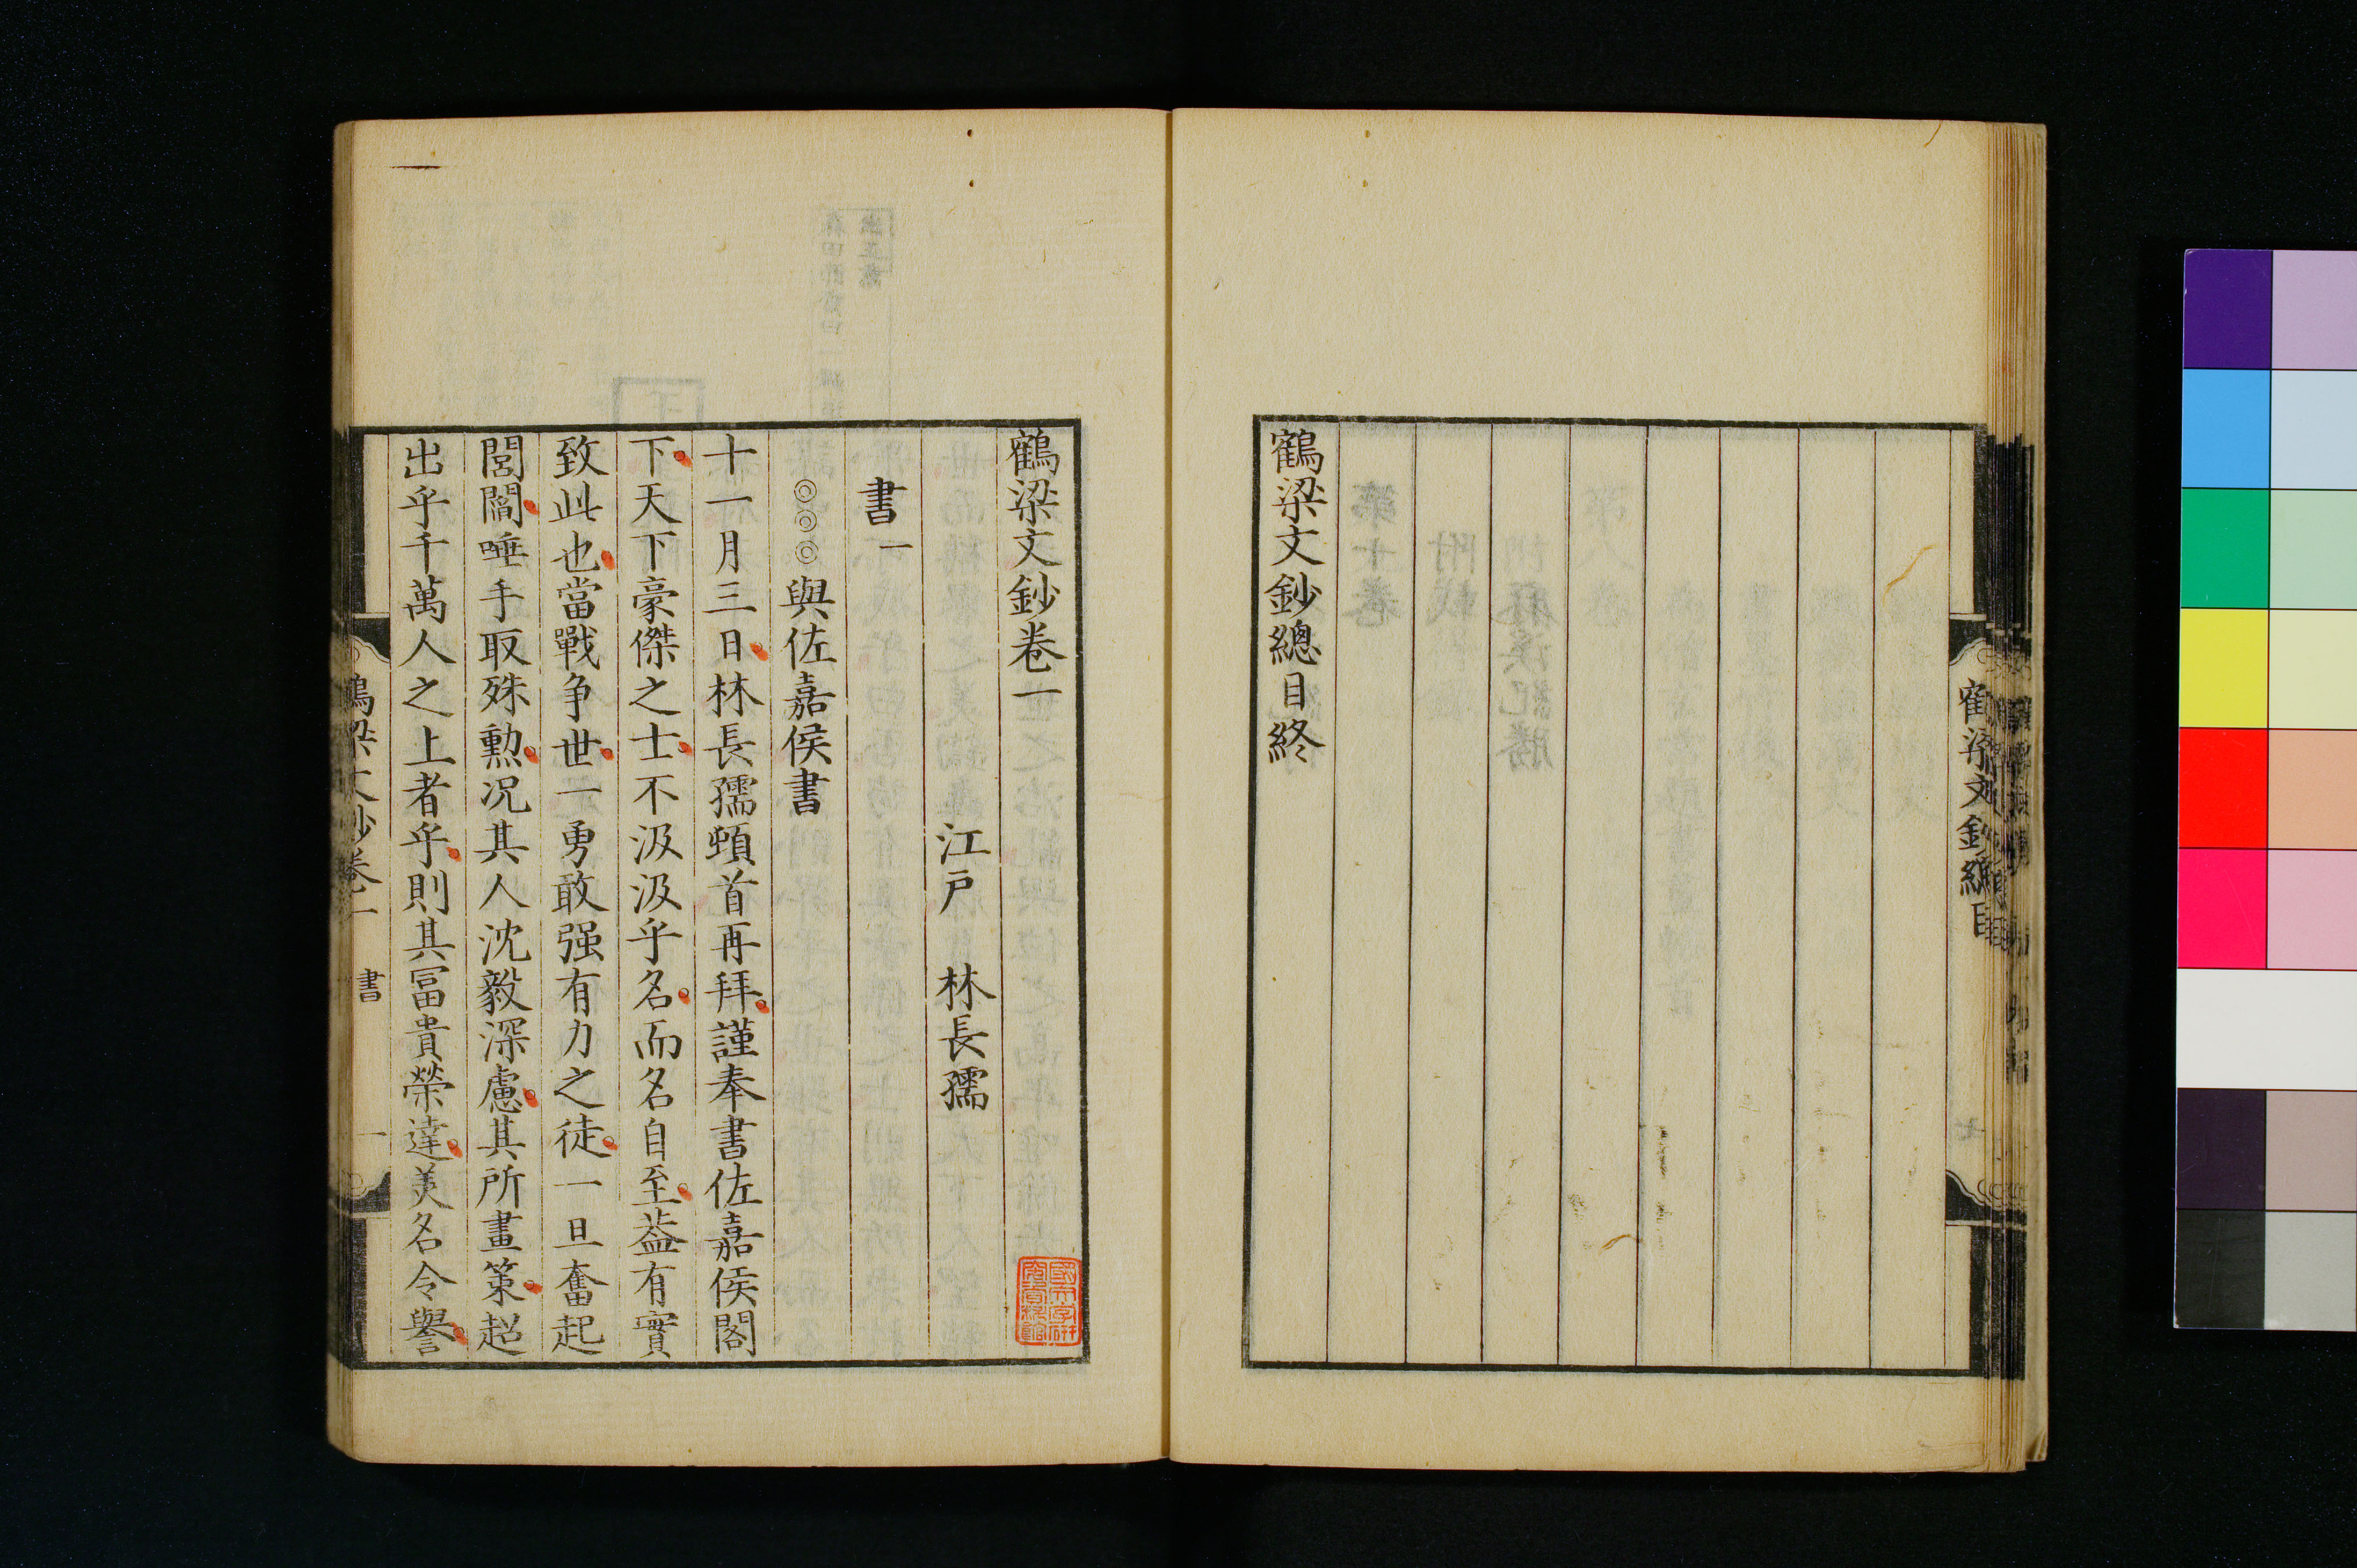 鶴梁文鈔總目終
鶴梁文鈔卷一
江戸　林長孺
書一
◎◎◎與佐嘉侯書
十一月三日林長孺頓首再拜謹奉書佐嘉侯閣
下天下豪傑之士不汲汲乎名而名自至葢有實
致此也當戰争世一勇敢强有力之徒一旦奮起
閭閻唾手取殊勲况其人沈毅深慮其所畫策超
出乎千萬人之上者乎則其冨貴榮達美名令譽
鶴梁文鈔卷一　書　一